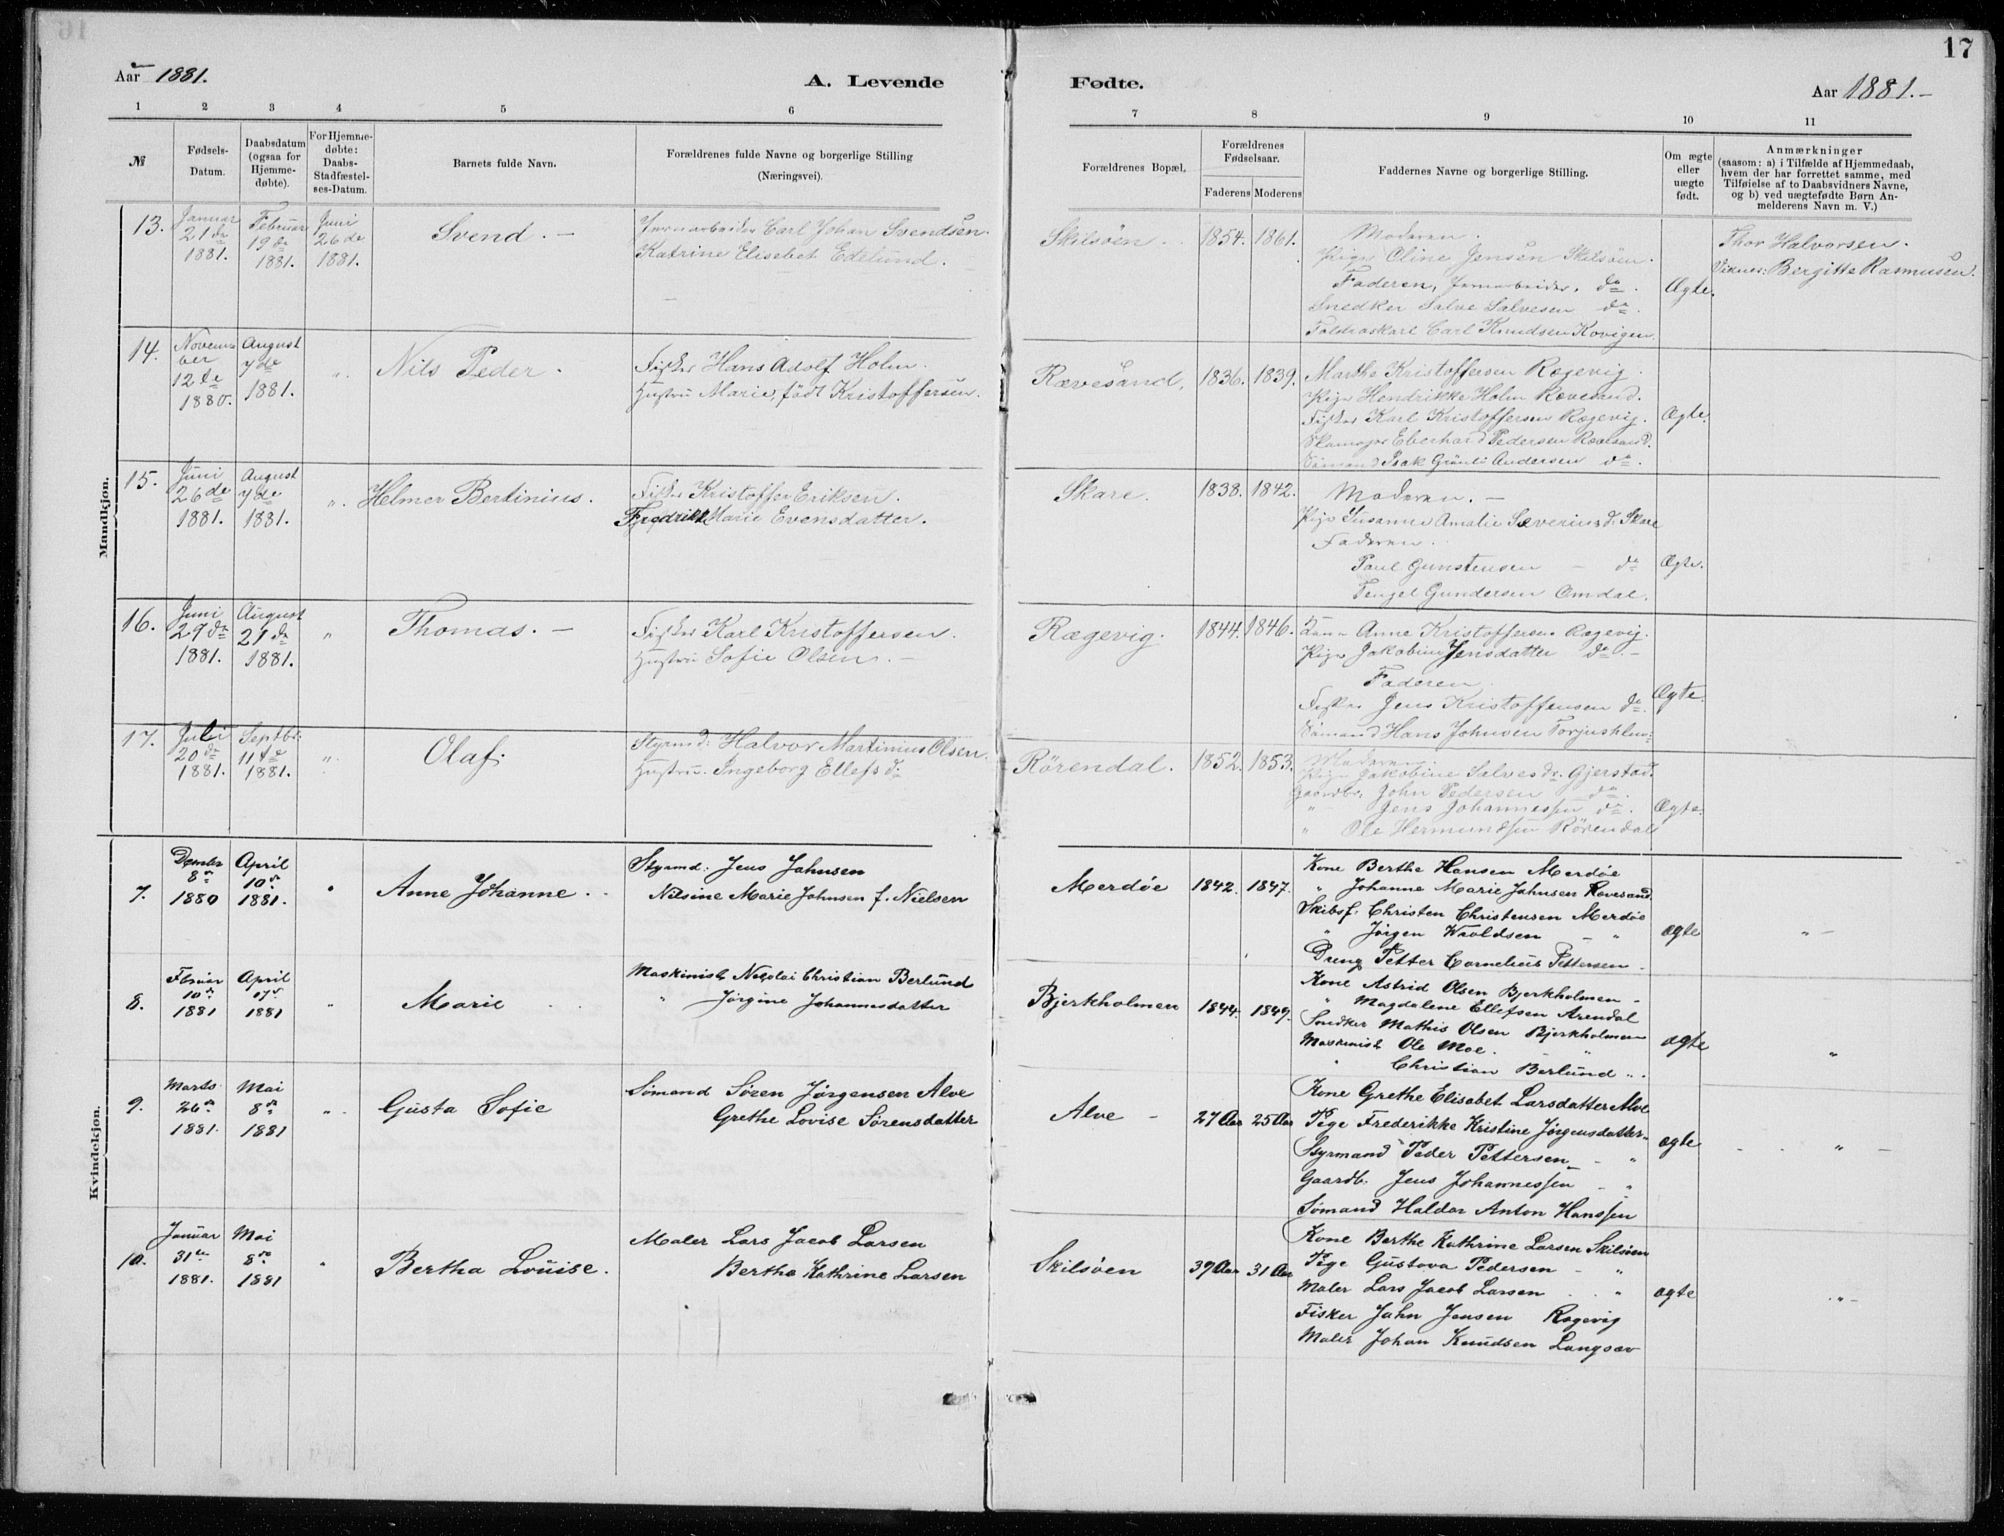 17
Aar 1881.
A. Levende
Fødte.
Aar 1881.–
1 2 3 4 5 6
7 8 9 10 11
№
Fødsels-
Datum.
Daabsdatum
(ogsaa for
Hjemme-
døbte).
For Hjemme-
døbte:
Daabs-
Stadfæstel-
ses-Datum.
Barnets fulde Navn.
Forældrenes fulde Navne og borgerlige Stilling
(Næringsvei).
Forældrenes Bopæl.
Forældrenes
Fødselsaar.
Faderens Moderens
Faddernes Navne og borgerlige Stilling.
Om ægte
eller
uægte
født.
Anmærkninger
(saasom: a) i Tilfælde af Hjemmedaab,
hvem der har forrettet samme, med
Tilføielse af to Daabsvidners Navne,
og b) ved uægtefødte Børn An-
melderens Navn m. V.)
Mandkjøn.
13.
Januar
21de
1881.
Februar
19de
1881.
Juni
26de
1881.
Svend. –
Jernarbeider Carl Johan Svendsen.
Katrine Elisebet Edelund.
Skilsöen.
1854. 1861.
Moderen.
Pige Oline Jensen Skilsöen.
Faderen, Jernarbeider, do.
Snedker Salve Salvesen do.
Carl Knudsen Kovigen
Ægte.
Thor Halvorsen.
Bergitte Rasmusen.
14.
Novem-
ber
12te
1880.
August
7de
1881.
".
Nils Peder.
Fisker Hans Adolf Holm.
Hustru Marie, født Kristoffersen.
Rævesand.
1836. 1839.
Marthe Kristoffersen Rægevig.
Pige Hendrikke Holm Rævesand.
Fisker Karl Kristoffersen Rægevig.
Eberhard Pedersen
Sömand Isak Andersen do.
Ægte.
15.
Juni
26de
1881.
August
7de
1881.
".
Helmer Bertinius.
Fisker Kristoffer Eriksen.
Fredrikke Marie Evensdatter.
Skare.
1838. 1842.
Moderen. –
Pige Susanne Amalie Severinsd. Skare
Faderen.
Paul Gunstensen – do
Tengel Gundersen Omdal.
Ægte.
16.
Juni
29de
1881.
August
21de
1881.
"
Thomas. –
Fisker Karl Kristoffersen.
Hustru Sofie Olsen. –
Rægevig.
1844. 1846.
Anne Kristoffersen Rægevig.
Pige Jakobine Jensdatter do. –
Faderen.
Fisker Jens Kristoffensen do.
Sömand Hans Johnsen
Ægte.
17.
Juli
20de
1881.
Septbr.
11te
1881.
".
Olaf.
Styrmd: Halvor Martinius Olsen.
Hustru. Ingeborg Ellefsdr
Rörendal.
1852. 1853.
Moderen.
Pige Jakobine Salvesdr. Gjerstad.
Gaardbr. John Pedersen do.
" Jens Johannessen do.
" Ole Hermundsen Rörendal
Ægte.
Kvindekjøn.
7.
Dcmber
8de
1880
April
10de
1881.
"
Anne Johanne.
Styrmd: Jens Jahnsen
Nilsine Marie Johnsen f. Nielsen
Merdøe
1842. 1847.
Kone Berthe Hansen Merdøe
" Johanne Marie Jahnsen Revesand
Skibsf. Christen Christensen Merdøe
" Jørgen Wroldsen – "
Dreng Petter Cornelius Pettersen –
ægte
" –
8.
Februar
10de
1881
April
17de
1881
"
Marie
Maskinist Nicolai Christian Berlund
" Jørgine Johannesdatter
Bjerkholmen
1844. 1849.
Kone Astrid Olsen Bjerkholmen –
" Magdalene Ellefsen Arendal
Snedker Mathis Olsen Bjerkholmen
Maskinist Ole Moe. "
" Christian Berlund ".
ægte
"
9.
Marts
26de
1881.
Mai
8de
1881
"
Gusta Sofie
Sømand Søren Jørgensen Alve
Grethe Lovise Sørensdatter
Alve –
27 Aar 25 Aar
Kone Grethe Elisabet Larsdatter Alve
Pige Frederikke Kristine Jørgensdatter "
Styrmand Peder Pettersen – "
Gaardb. Jens Johannessen – "
Sømand Haldor Anton Hanssen
ægte
" –
10.
Januar
31te
1881.
Mai
8de
1881
"
Bertha Louise.
Maler Lars Jacob Larsen
Berthe Kathrine Larsen
Skilsøen
39 Aar 31 Aar
Kone Berthe Kathrine Larsen Skilsøen
Pige Gustava Pedersen – "
Maler Lars Jacob Larsen "
Fisker Jahn Jensen Rægevig
Maler Johan Knudsen Langsæv
ægte
" –